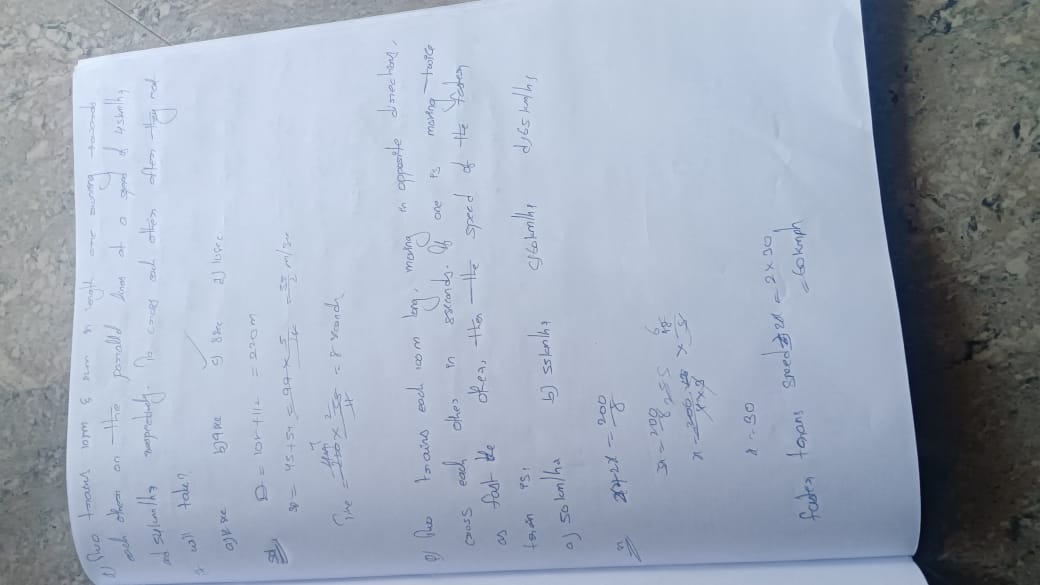 1) Two trains 108m & 112m in length are running towards
each other on the parallel lines at a speed of 45km/hr
and 54km/hr respectively. To cross each other after they met
it will take?
b) 9sec c) 8sec d) 10sec
Sol D = 108+112 = 220m
SP = 45+54 = 99 × 5/18 = 55/2 m/sec
Time = = 8 seconds
2) Two trains each 100m long, moving in opposite directions,
cross each other in 8seconds. If one is moving twice
as fast the other, then the speed of the faster
train is:
a) 50km/hr b) 55km/hr c) 60km/hr d) 65km/hr
x+2x = 200/8
3x = 200/8
x =
x = 30
faster trains speed 2x = 2×30
= 60kmph